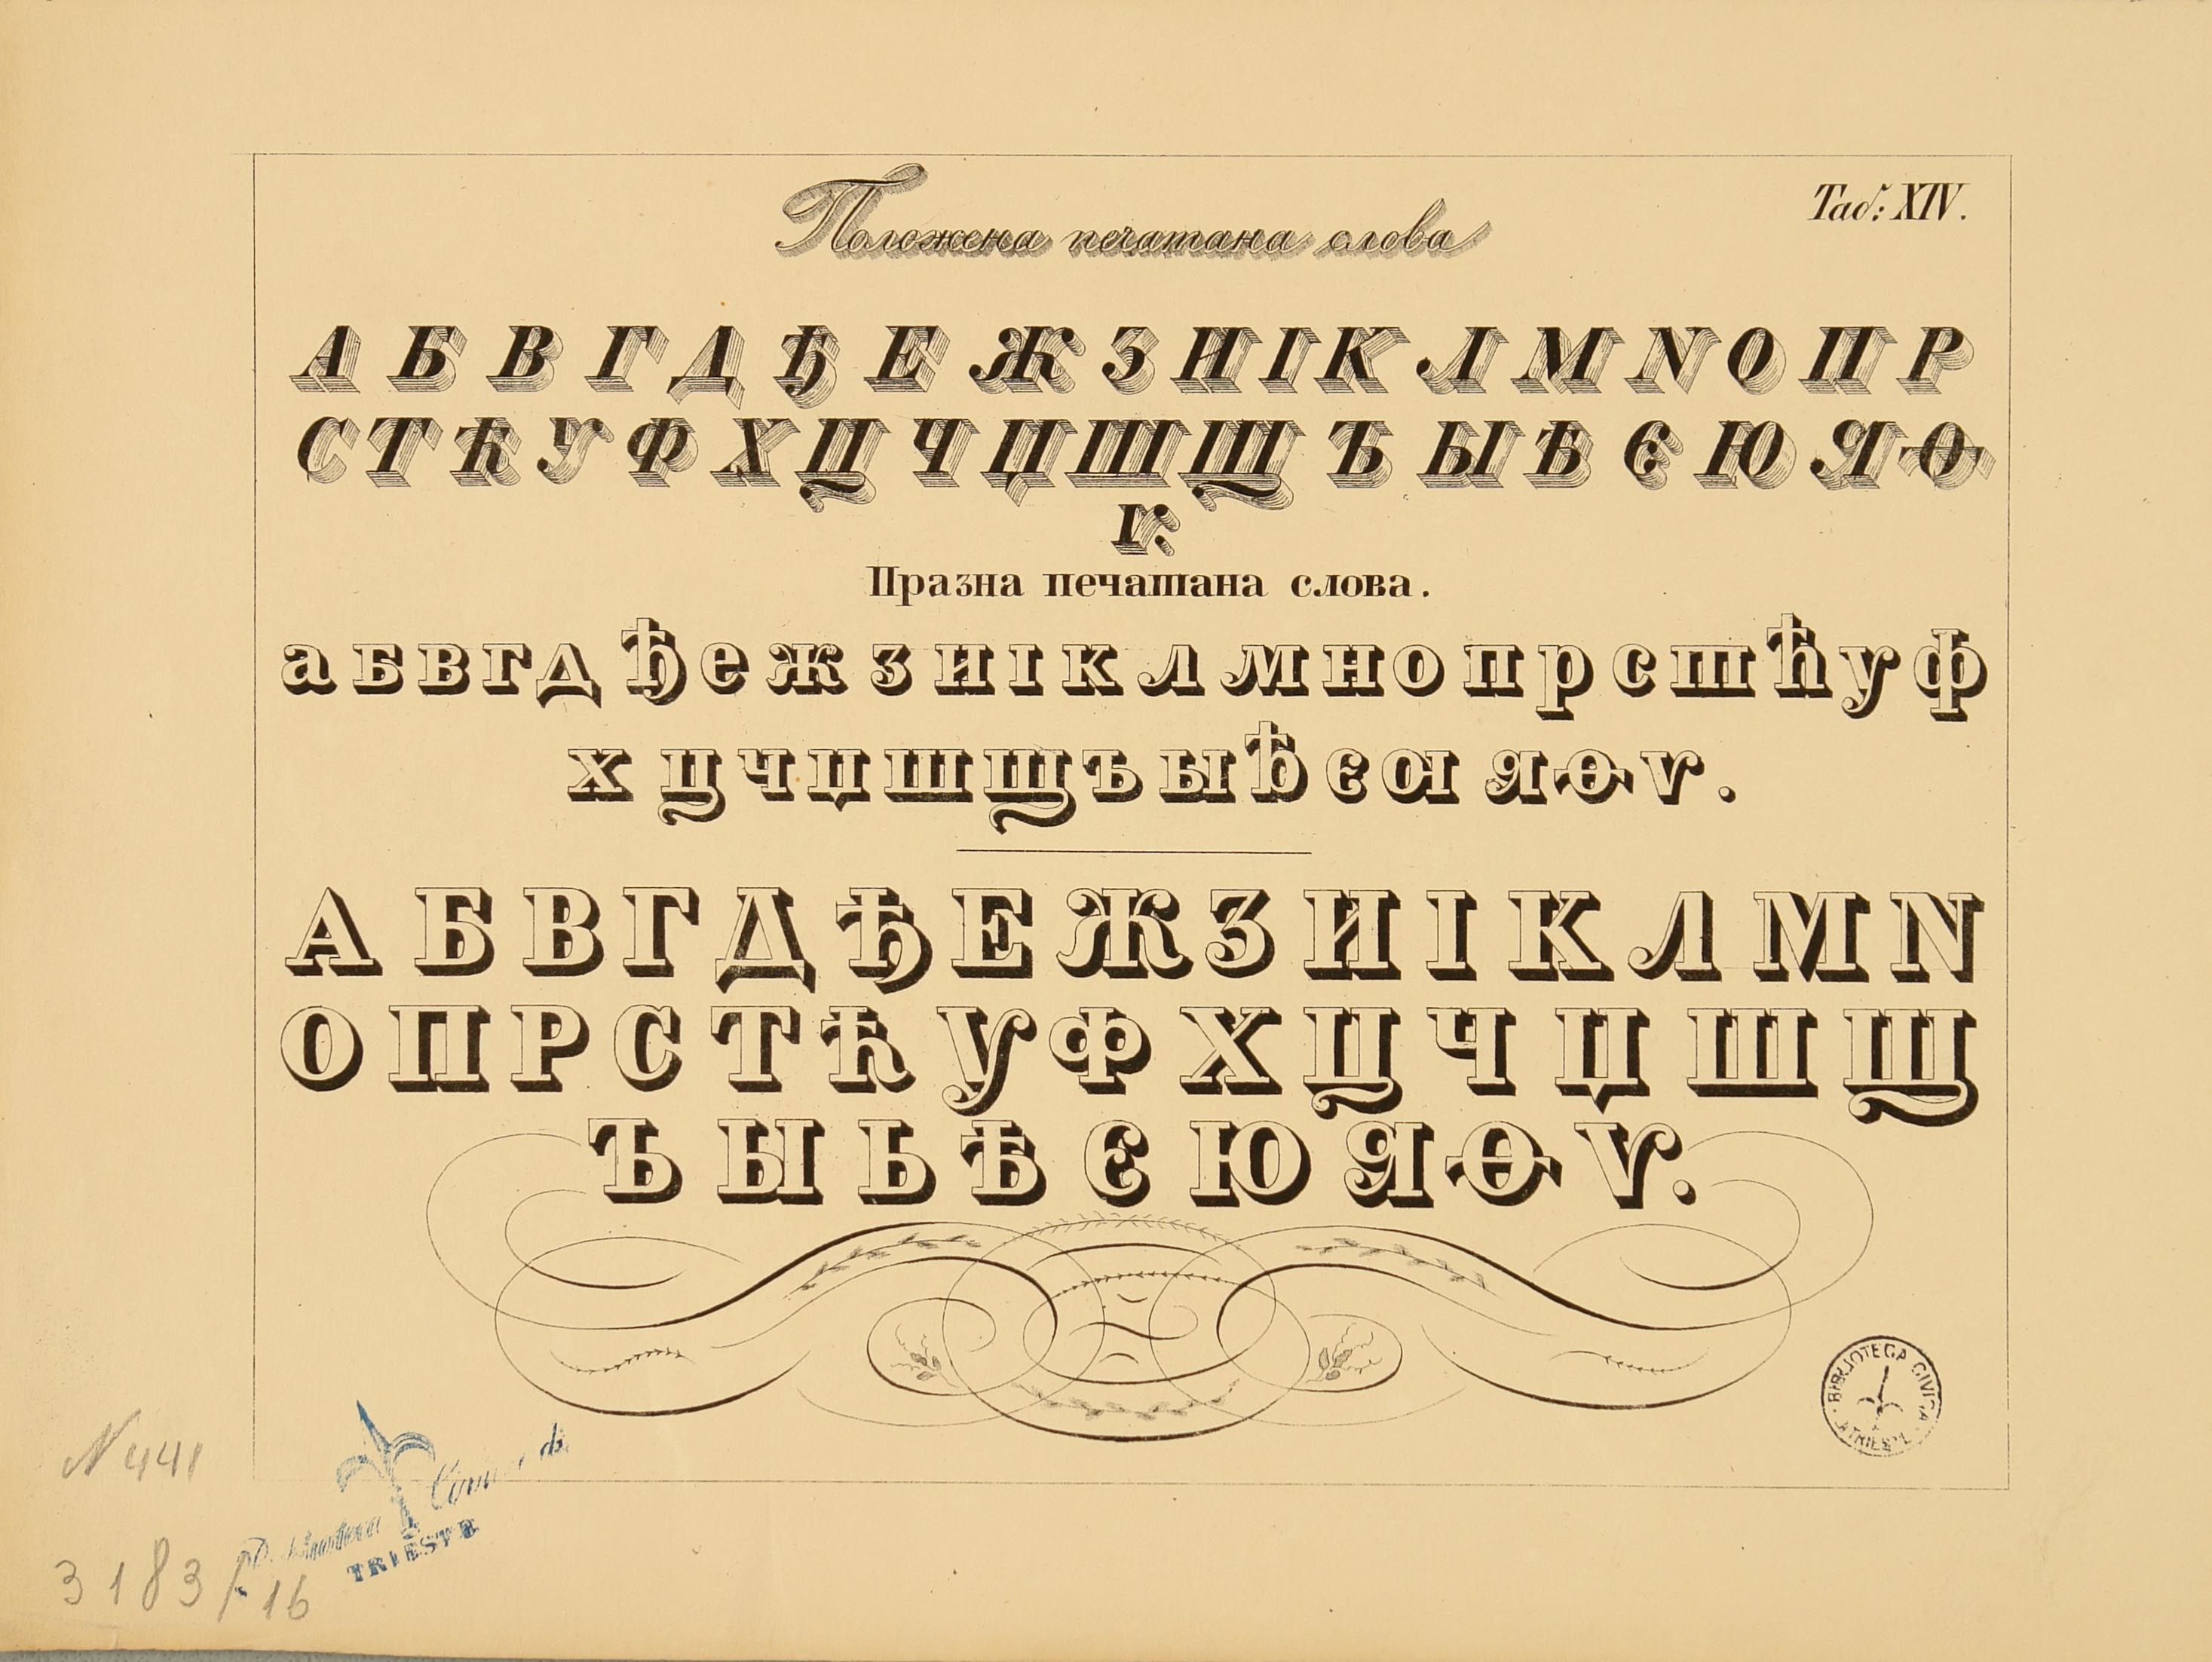 Таб: XIV.
Положена печатана слова
А Б В Г Д Ђ Е Ж З И І К Л М N О П Р
С Т Ћ У Ф Х Ц Ч Џ Ш Щ Ъ Ы Ѣ Є Ю Я Ѳ
Ѵ.
Празна печатана слова.
а б в г д ђ е ж з и і к л м н о п р с т ћ у ф
х ц ч џ ш щ ъ ы ѣ є ю я ѳ ѵ.
А Б В Г Д Ђ Е Ж З И І К Л М N
О П Р С Т Ћ У Ф Х Ц Ч Џ Ш Щ
Ъ Ы Ь Ѣ Є Ю Я Ѳ Ѵ.
BIBLIOTECA CIVICA TRIESTE
N 441
TRIESTE
3183/16